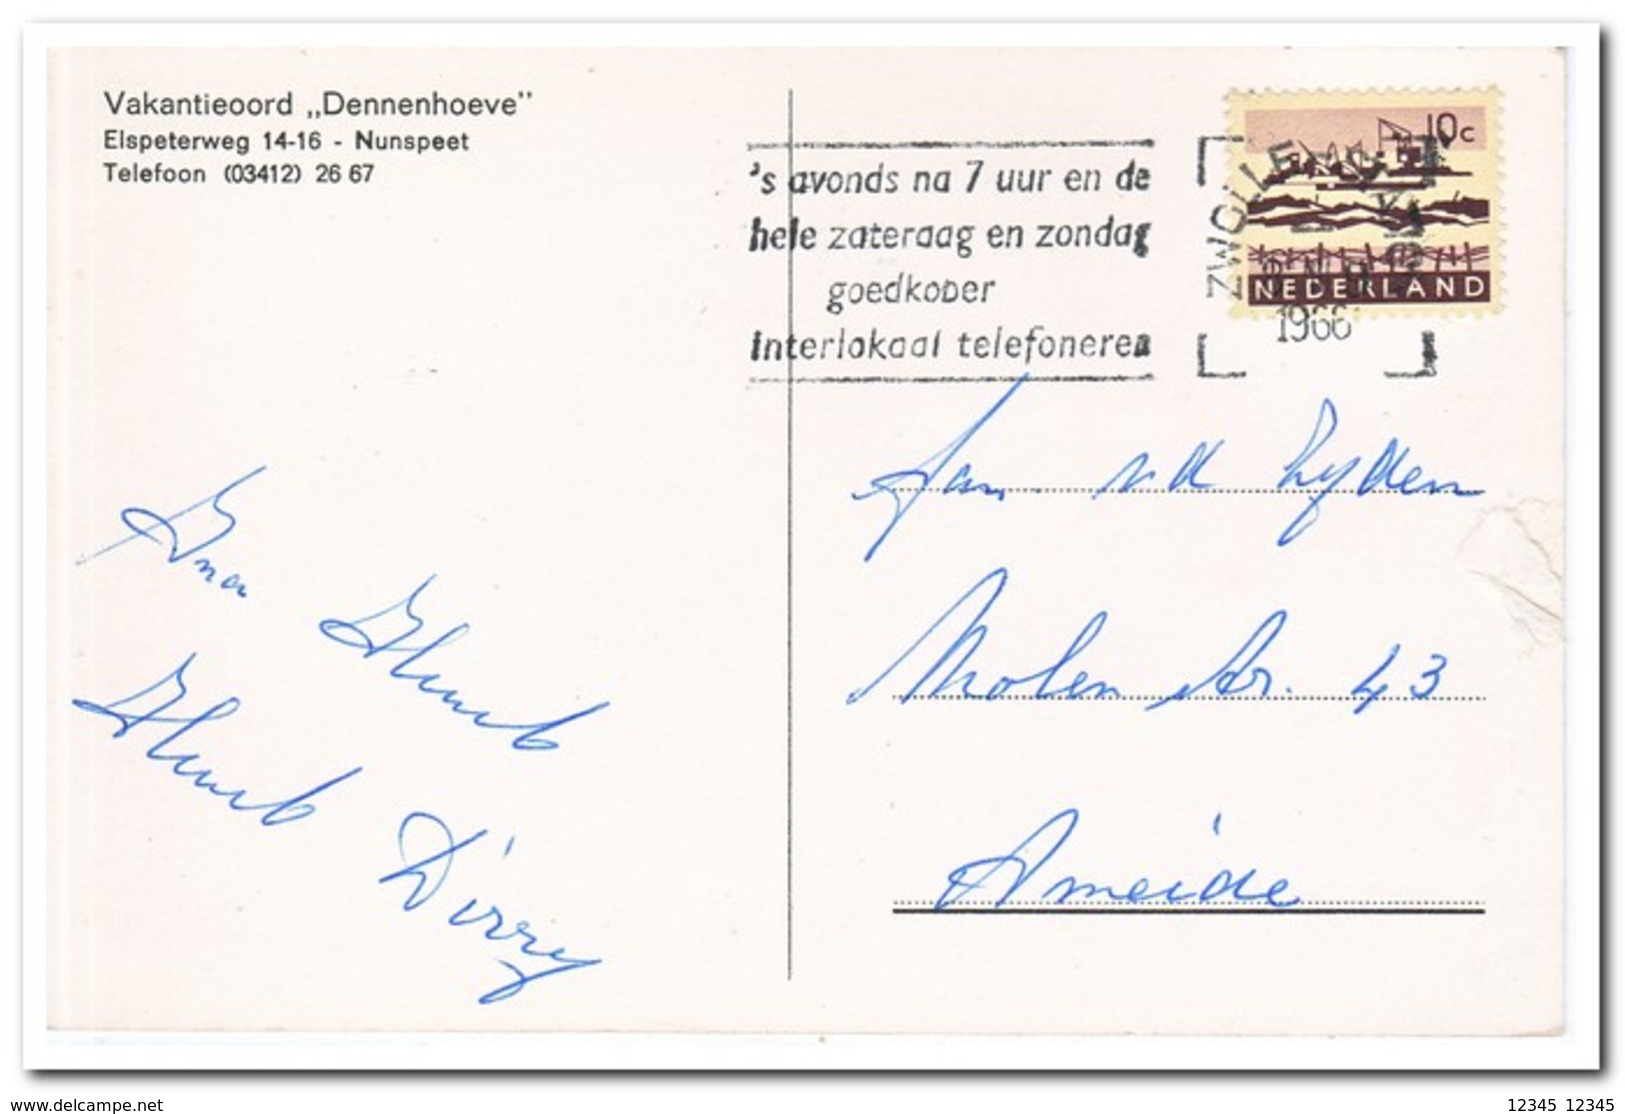 Vakantieoord „Dennenhoeve”
Elspeterweg 14-16 - Nunspeet
Telefoon (03412) 26 67
's avonds na 7 uur en de
hele zaterdag en zondag
goedkoper
interlokaal telefoneren
ZWOLLE
1966
10c
NEDERLAND
Jan v d Lyden
Molen str. 43
Ameide
Dirry
www.delcampe.net
12345 12345